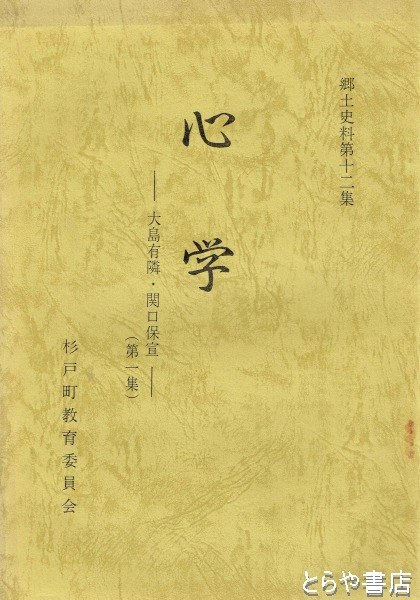 郷土史料第十二集
心学
―大島有隣・関口保宣―
(第一集)
杉戸町教育委員会
とらや書店